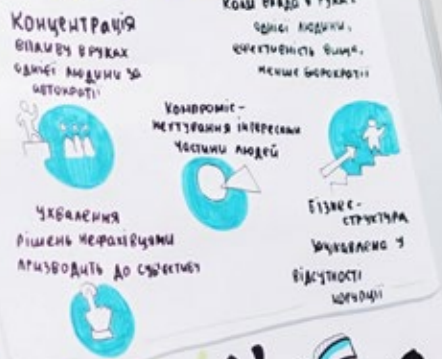 Концентрація
впливу в руках
однієї людини за
автократії
коли влада в руках
однієї людини,
ефективність вища,
менше бюрократії
Компроміс -
нехтування інтересами
частини людей
Ухвалення
рішень нефахівцями
призводить до
Бізнес-
структура
зацікавлена у
відсутності
корупції